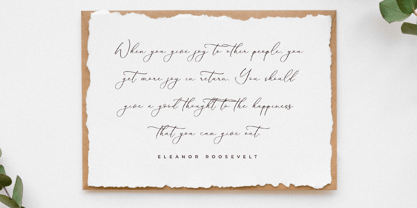 When you give joy to other people, you
get more joy in return. You should
give a good thought to the happiness
that you can give out.
ELEANOR ROOSEVELT